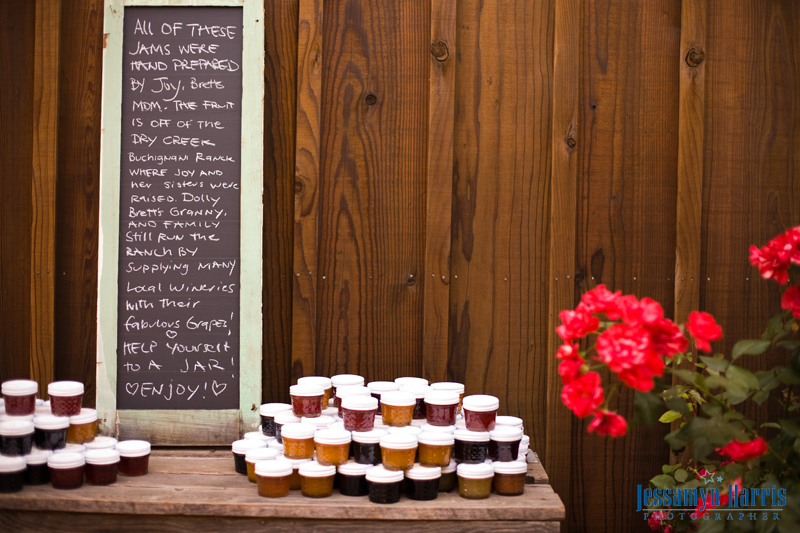 ALL OF THESE
JAMS WERE
HAND PREPARED
BY JOY, Bretts
MOM. THE FRUIT
IS OFF OF THE
DRY CREEK
Buchignani Ranch
WHERE JOY AND
her SISTERS WERE
RAISED. Dolly
Brett's Granny,
AND FAMILY
Still RUN THE
RANCH BY
Supplying MANY
Local Wineries
with their
fabulous Grapes!
HELP YOURSELF
TO A JAR!
♡ENJOY!♡
Jessamyn Harris
PHOTOGRAPHER